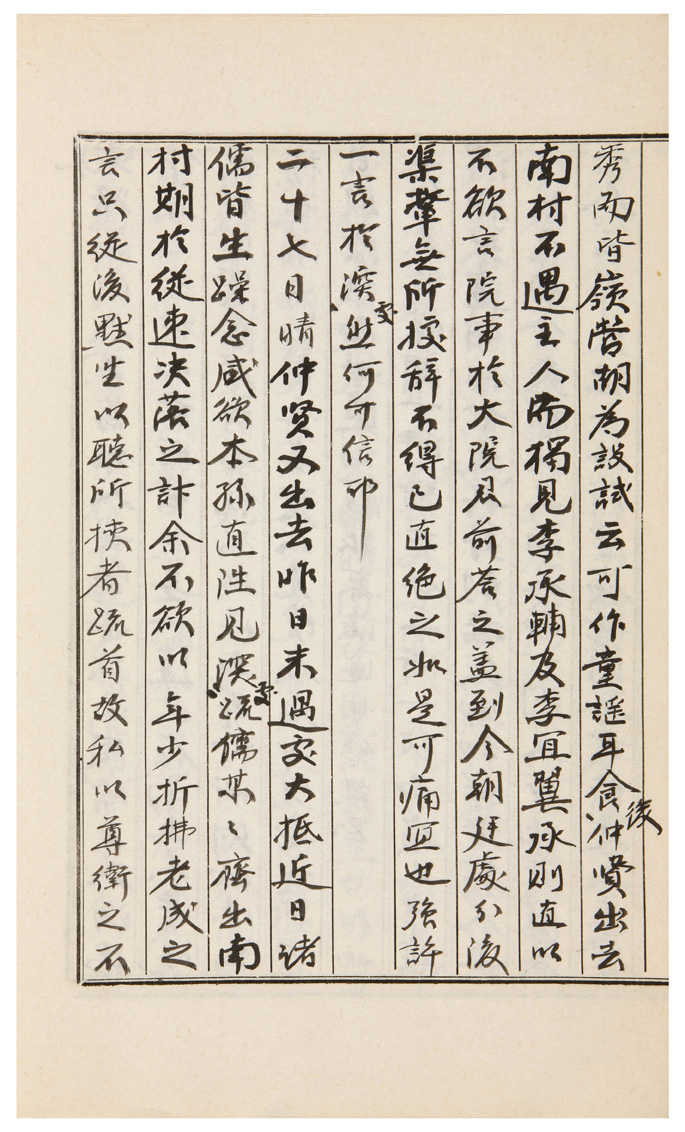 秀而皆嶺營胡爲設試云可作童謠耳食後仲賢出去
南村不遇主人而獨見李承輔及李宜翼承則直以
不欲言院事於大院君前答之盖到今朝廷處分後
渠輩無所措辭不得已直絶之如是可痛叵也強許
一言於溪雯然何可信耶
二十七日晴仲賢又出去昨日未遇處大抵近日諸
儒皆生躁念咸欲本孫直陞見溪雯䟽儒某〻齊出南
村期於從速决落之計余不欲以年少折拂老成之
言只從後默坐以聽所挾者䟽首故私以尊衛之不